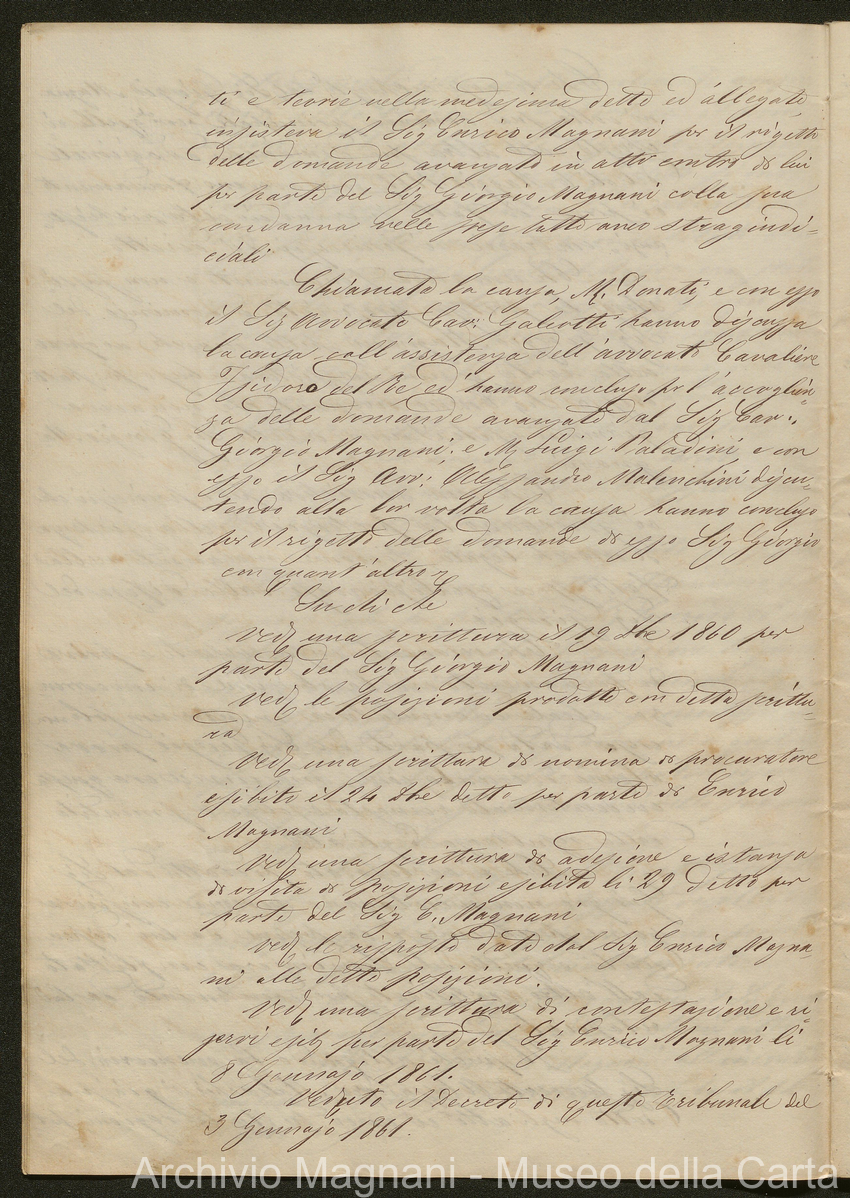 ti e teorie nella medesima dette ed allegate
insisteva il Sig Enrico Magnani per il rigetto
delle domande avanzate in atto contro di lui
per parte del Sig Giorgio Magnani colla sua
condanna nelle spese tutte anco stragiudi=
ciali
Chiamata la causa, M. Donati, e con esso
il Sig Avvocato Cav: Galeotti hanno discussa
la causa coll'assistenza dell'avvocato Cavaliere
Isidoro del Re ed hanno concluso per l'accoglien=
za delle domande avanzate dal Sig Cav:
Giorgio Magnani; e M Luigi Paladini, e con
esso il Sig Avv: Alessandro Malenchini discu=
tendo alla lor volta la causa hanno concluso
per il rigetto delle domande di esso Sig Giorgio
con quant'altro
Su di che
Ved una scrittura il 19 Xbe 1860 per
parte del Sig Giorgio Magnani
Ved le posizioni prodotte con detta scrittu=
ra
Ved una scrittura di nomina di procuratore
esibita il 24 Xbe detto per parte di Enrico
Magnani
Ved una scrittura di adesione e istanza
di visita di posizioni esibita li 29 detto per
parte del Sig E. Magnani
Ved le risposte date dal Sig Enrico Magna=
ni alle dette posizioni.
Ved una scrittura di contestazione e ri=
servi esib per parte del Sig Enrico Magnani li
8 Gennajo 1861.
Veduto il Decreto di questo Tribunale del
3 Gennajo 1861.
Archivio Magnani - Museo della Carta